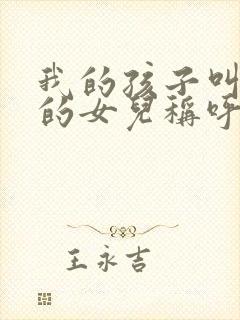 我的孩子叫
的女兒稱呼
王永吉